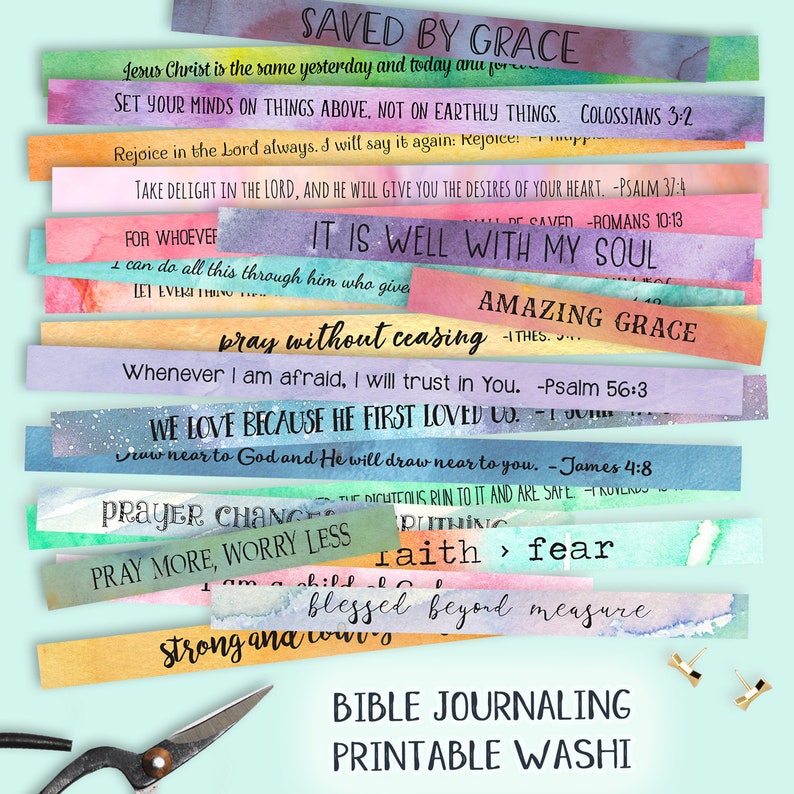 SAVED BY GRACE
Jesus Christ is the same yesterday and today and
SET YOUR MINDS ON THINGS ABOVE, NOT ON EARTHLY THINGS. COLOSSIANS 3:2
Rejoice in the Lord always. I will say it again: Rejoice!
TAKE DELIGHT IN THE LORD, AND HE WILL GIVE YOU THE DESIRES OF YOUR HEART. -PSALM 37:4
FOR WHOEVER BE SAVED. -ROMANS 10:13
IT IS WELL WITH MY SOUL
I can do all this through him who
LET EVERYTHING
AMAZING GRACE
pray without ceasing -1 THES.
Whenever I am afraid, I will trust in You. -Psalm 56:3
WE LOVE BECAUSE HE FIRST LOVED US.
Draw near to God and He will draw near to you. -James 4:8
THE RIGHTEOUS RUN TO IT AND ARE SAFE. -PROVERBS
PRAYER CHANGES EVERYTHING
PRAY MORE, WORRY LESS
faith > fear
I am a child of
blessed beyond measure
strong and
BIBLE JOURNALING
PRINTABLE WASHI